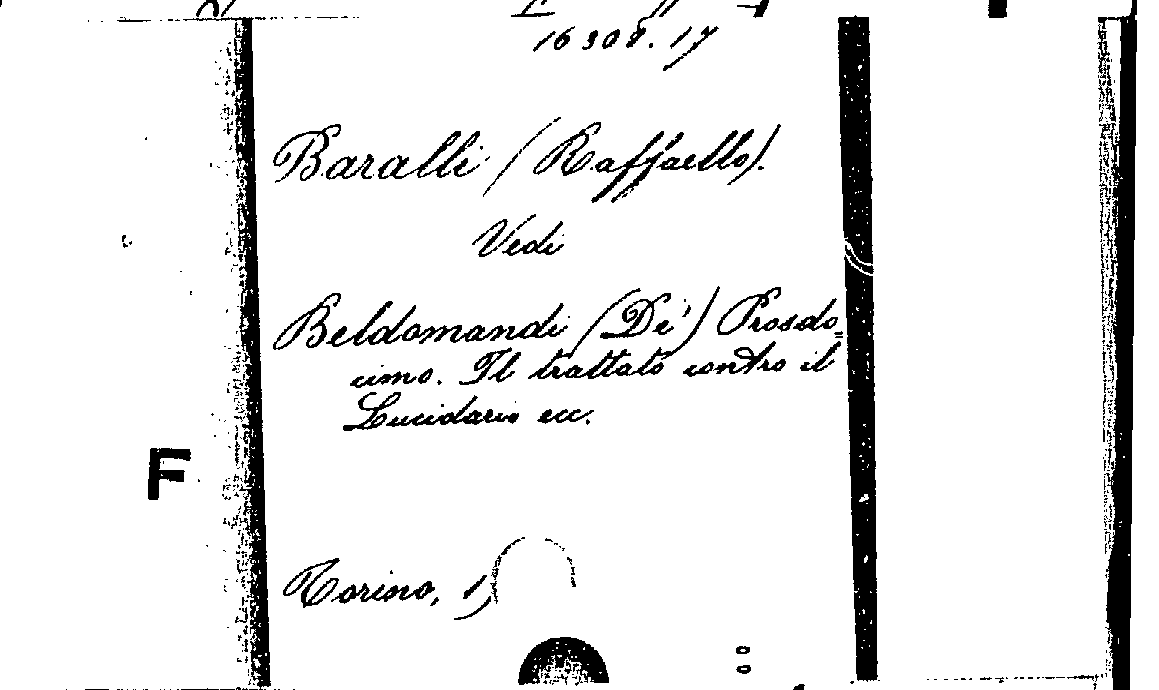 16308.17
Baralli (Raffaello).
Vedi
Beldomandi (De') Prosdo=
cimo. Il trattato contro il
Lucidario ecc.
F
Torino, 1